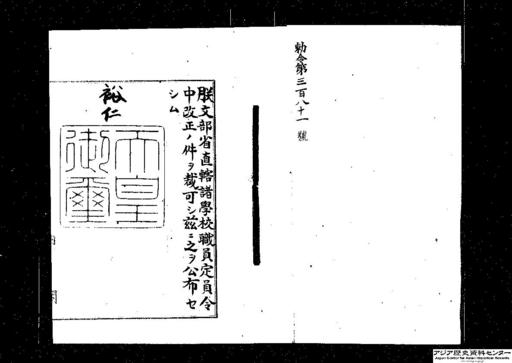 勅令第三百八十一號
朕文部省直轄諸學校職員定員令
中改正ノ件ヲ裁可シ茲ニ之ヲ公布セ
シム
裕仁
天皇
御璽
アジア歴史資料センター
Japan Center for Asian Historical Records